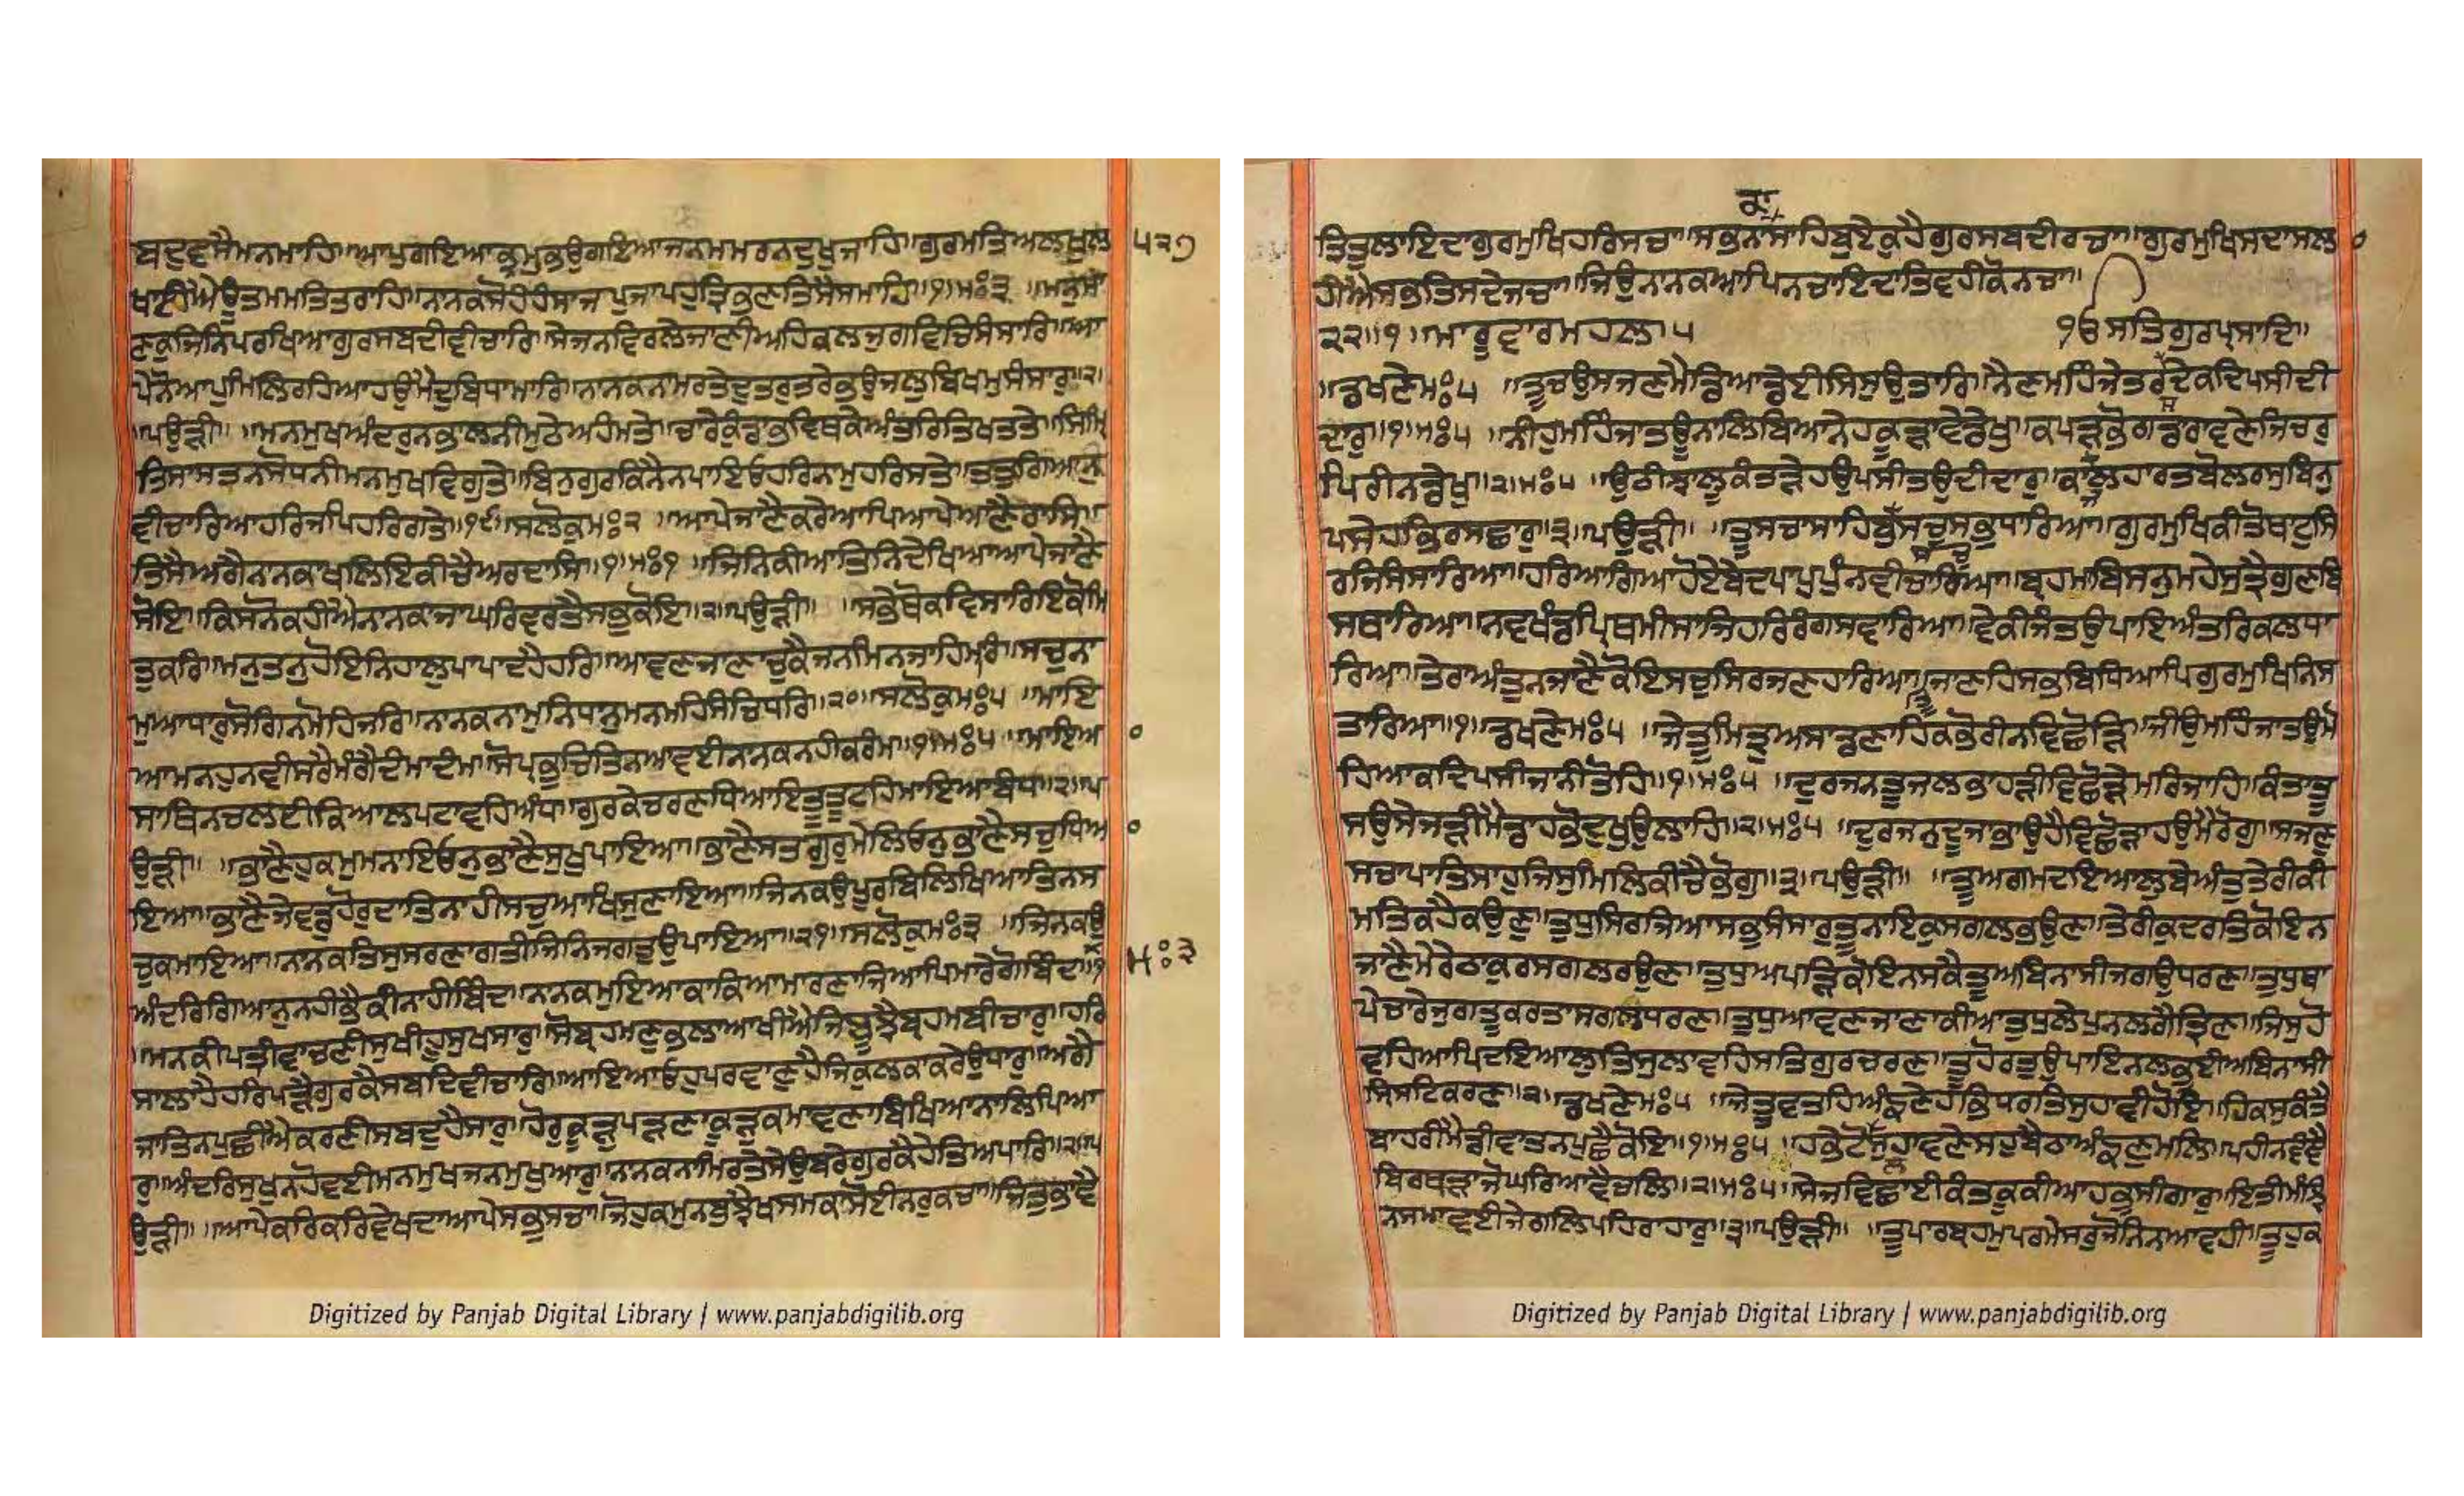 ਬਦੁਵਸੈਮਨਮਾਹਿ॥ਆਪੁਗਇਆਭ੍ਰਮੁਭਉਗਇਆਜਨਮਮਰਨਦੁਖੁਜਾਹਿ॥ਗੁਰਮਤਿਅਲਖੁਲ ੫੨੭
ਖਾਈਐਊਤਮਮਤਿਤਰਾਹਿ॥ਨਾਨਕਸੋਹੰਹੰਸਾਜਪੁਜਾਪਹੁਤ੍ਰਿਭਵਣਤਿਸੈਸਮਾਹਿ॥੧॥ਮਃ੩ ॥ਮਨੁਮਾ
ਣਕੁਜਿਨਿਪਰਖਿਆਗੁਰਸਬਦੀਵੀਚਾਰਿ॥ਸੇਜਨਵਿਰਲੇਜਾਣੀਅਹਿਕਲਜੁਗਵਿਚਿਸੰਸਾਰਿ॥ਆ
ਪੇਨੋਆਪੁਮਿਲਿਰਹਿਆਹਉਮੈਦੁਬਿਧਾਮਾਰਿ॥ਨਾਨਕਨਾਮਰਤੇਦੁਤਰੁਤਰੇਭਉਜਲੁਬਿਖਮੁਸੰਸਾਰੁ॥੨॥
॥ਪਉੜੀ॥ ॥ਮਨਮੁਖਅੰਦਰੁਨਭਾਲਨੀਮੁਠੇਅਹੰਮਤੇ॥ਚਾਰੇਕੁੰਡਾਭਵਿਥਕੇਅੰਤਰਿਤਿਖਤਤੇ॥ਸਿੰਮ੍ਰਿ
ਤਿਸਾਸਤਨਸੋਧਨੀਮਨਮੁਖਵਿਗੁਤੇ॥ਬਿਨੁਗੁਰਕਿਨੈਨਪਾਇਓਹਰਿਨਾਮੁਹਰਿਸਤੇ॥ਤਤੁਗਿਆਨੁ
ਵੀਚਾਰਿਆਹਰਿਜਪਿਹਰਿਗਤੇ॥੧੯॥ਸਲੋਕੁਮਃ੨ ॥ਆਪੇਜਾਣੈਕਰੇਆਪਿਆਪੇਆਣੈਰਾਸਿ॥
ਤਿਸੈਅਗੈਨਾਨਕਾਖਲਿਇਕੀਚੈਅਰਦਾਸਿ॥੧॥ਮਃ੧ ॥ਜਿਨਿਕੀਆਤਿਨਿਦੇਖਿਆਆਪੇਜਾਣੈ
ਸੋਇ॥ਕਿਸਨੋਕਹੀਐਨਾਨਕਾਜਾਘਰਿਵਰਤੈਸਭੁਕੋਇ॥੨॥ਪਉੜੀ॥ ॥ਸਭੇਥੋਕਵਿਸਾਰਿਇਕੋਮਿ
ਤੁਕਰਿ॥ਮਨੁਤਨੁਹੋਇਨਿਹਾਲੁਪਾਪਾਦਹੈਹਰਿ॥ਆਵਣਜਾਣਾਚੁਕੈਜਨਮਿਨਜਾਹਿਮਰਿ॥ਸਚੁਨਾ
ਮੁਆਧਾਰੁਸੋਗਿਨਮੋਹਿਜਰਿ॥ਨਾਨਕਨਾਮੁਨਿਧਾਨੁਮਨਮਹਿਸੰਚਿਧਰਿ॥੨੦॥ਸਲੋਕੁਮਃ੫ ॥ਮਾਇ
ਆਮਨਹੁਨਵੀਸਰੈਮੰਗੈਦੰਮਾਦੰਮਾ॥ਸੋਪ੍ਰਭੁਚਿਤਿਨਆਵਈਨਾਨਕਨਹੀਕਰੰਮਾ॥੧॥ਮਃ੫ ॥ਮਾਇਆ ੦
ਸਾਥਿਨਚਲਈਕਿਆਲਪਟਾਵਹਿਅੰਧਾ॥ਗੁਰਕੇਚਰਣਧਿਆਇਤੂਤੂਟਹਿਮਾਇਆਬੰਧਾ॥੨॥ਪ
ਉੜੀ॥ ॥ਭਾਣੈਹੁਕਮੁਮਨਾਇਓਨੁਭਾਣੈਸੁਖੁਪਾਇਆ॥ਭਾਣੈਸਤਗੁਰੁਮੇਲਿਓਨੁਭਾਣੈਸਚੁਧਿਆ ੦
ਇਆ॥ਭਾਣੈਜੇਵਡੁਹੋਰੁਦਾਤਿਨਾਹੀਸਚੁਆਖਿਸੁਣਾਇਆ॥ਜਿਨਕਉਪੂਰਬਿਲਿਖਿਆਤਿਨਸ
ਚੁਕਮਾਇਆ॥ਨਾਨਕਤਿਸੁਸਰਣਾਗਤੀਜਿਨਿਜਗਤੁਉਪਾਇਆ॥੨੧॥ਸਲੋਕੁਮਃ੩ ॥ਜਿਨਕਉ
ਅੰਦਰਿਗਿਆਨੁਨਹੀਭੈਕੀਨਾਹੀਬਿੰਦ॥ਨਾਨਕਮੁਇਆਕਾਕਿਆਮਾਰਣਾਜਿਆਪਿਮਾਰੇਗੋਬਿੰਦ॥੧ ਮਃ੩
॥ਮਨਕੀਪਤ੍ਰੀਵਾਚਣੀਸੁਖੀਹੂਸੁਖਸਾਰੁ॥ਸੋਬ੍ਰਹਮਣੁਭਲਾਆਖੀਐਜਿਬੂਝੈਬ੍ਰਹਮਬੀਚਾਰੁ॥ਹਰਿ
ਸਾਲਾਹੈਹਰਿਪੜੈਗੁਰਕੈਸਬਦਿਵੀਚਾਰਿ॥ਆਇਆਓਹੁਪਰਵਾਣੁਹੈਜਿਕੁਲਕਾਕਰੇਉਧਾਰੁ॥ਅਗੈ
ਜਾਤਿਨਪੁਛੀਐਕਰਣੀਸਬਦੁਹੈਸਾਰੁ॥ਹੋਰੁਕੂੜੁਪੜਣਾਕੂੜੁਕਮਾਵਣਾਬਿਖਿਆਨਾਲਿਪਿਆ
ਰੁ॥ਅੰਦਰਿਸੁਖੁਨਹੋਵਈਮਨਮੁਖਜਨਮੁਖੁਆਰੁ॥ਨਨਕਨਾਮਿਰਤੇਸੇਉਬਰੇਗੁਰਕੈਹੇਤਿਅਪਾਰਿ॥੨॥ਪ
ਉੜੀ॥ ॥ਆਪੇਕਰਿਕਰਿਵੇਖਦਾਆਪੇਸਭੁਸਚਾ॥ਜੋਹੁਕਮੁਨਬੂਝੈਖਸਮਕਾਸੋਈਨਰੁਕਚਾ॥ਜਿਤੁਭਾਵੈ
ਕਾ
ਤਿਤੁਲਾਇਦਾਗੁਰਮੁਖਿਹਰਿਸਚਾ॥ਸਭਨਾਸਾਹਿਬੁਏਕੁਹੈਗੁਰਸਬਦੀਰਚਾ॥ਗੁਰਮੁਖਿਸਦਾਸਲਾ ੦
ਹੀਐਸਭਤਿਸਦੇਜਚਾ॥ਜਿਉਨਾਨਕਆਪਿਨਚਾਇਦਾਤਿਵਹੀਕੋਨਚਾ॥
੨੨॥੧॥ ॥ਮਾਰੂਵਾਰਮਹਲਾ੫ ੴਸਤਿਗੁਰਪ੍ਰਸਾਦਿ॥
॥ਡਖਣੇਮਃ੫ ॥ਤੂਚਉਸਜਣਮੈਡਿਆਡੇਈਸਿਸੁਉਤਾਰਿ॥ਨੈਣਮਹਿੰਜੇਤਰਦੇਕਦਿਪਸੀਦੀ
ਦਾਰੁ॥੧॥ਮਃ੫ ॥ਨੀਹੁਮਹਿੰਜਾਤਊਨਾਲਿਬਿਆਨੇਹਕੂੜਾਵੇਡੇਖੁ॥ਕਪੜਭੋਗਡਰਾਵਣੇਜਿਚਰੁ
ਪਿਰੀਨਡੇਖੁ॥੨॥ਮਃ੫ ॥ਉਠੀਝਾਲੂਕੰਤੜੇਹਉਪਸੀਤਉਦੀਦਾਰੁ॥ਕਾਲੁਹਾਰਤਬੋਲਰਸੁਬਿਨੁ
ਪਸੇਹਭਿਰਸਛਾਰੁ॥੩॥ਪਉੜੀ॥ ॥ਤੂਸਚਾਸਾਹਿਬੁਸਚੁਸਭੁਧਾਰਿਆ॥ਗੁਰਮੁਖਿਕੀਤੋਥਾਟੁਸਿ
ਰਜਿਸੰਸਾਰਿਆ॥ਹਰਿਆਗਿਆਹੋਏਬੇਦਪਾਪੁਪੁੰਨਵੀਚਾਰਿਆ॥ਬ੍ਰਹਮਾਬਿਸਨੁਮਹੇਸੁਤ੍ਰੈਗੁਣਬਿ
ਸਥਾਰਿਆ॥ਨਵਖੰਡਪ੍ਰਿਥਮੀਸਾਜਿਹਰਿਰੰਗਸਵਾਰਿਆ॥ਵੇਕੀਜੰਤਉਪਾਇਅੰਤਰਿਕਲਧਾ
ਰਿਆ॥ਤੇਰਾਅੰਤੁਨਜਾਣੈਕੋਇਸਚੁਸਿਰਜਣਹਾਰਿਆ॥ਜਾਣਹਿਸਭਬਿਧਿਆਪਿਗੁਰਮੁਖਿਨਿਸ
ਤਾਰਿਆ॥੧॥ਡਖਣੇਮਃ੫ ॥ਜੇਤੂਮਿਤ੍ਰੁਅਸਾਡਣਾਹਿਕਭੋਰੀਨਵਿਛੋੜਿ॥ਜੀਉਮਹਿੰਜਾਤਊਮੋ
ਹਿਆਕਦਿਪਸੀਜਾਨੀਤੋਹਿ॥੧॥ਮਃ੫ ॥ਦੁਰਜਨਤੂਜਲਭਾਹੜੀਵਿਛੋੜੇਮਰਿਜਾਹਿ॥ਕੰਤਾਤੂ
ਸਉਸੇਜੜੀਮੈਡਾਹਭੋਦੁਖੁਉਲਾਹਿ॥੨॥ਮਃ੫ ॥ਦੁਰਜਨੁਦੂਜਾਭਾਉਹੈਵਿਛੋੜਾਹਉਮੈਰੋਗੁ॥ਸਜਣੁ
ਸਚਾਪਾਤਿਸਾਹੁਜਿਸੁਮਿਲਿਕੀਚੈਭੋਗੁ॥੩॥ਪਉੜੀ॥ ॥ਤੂਅਗਮਦਇਆਲੁਬੇਅੰਤੁਤੇਰੀਕੀ
ਮਤਿਕਹੈਕਉਣੁ॥ਤੁਧੁਸਿਰਜਿਆਸਭੁਸੰਸਾਰੁਤੂਨਾਇਕੁਸਗਲਭਉਣ॥ਤੇਰੀਕੁਦਰਤਿਕੋਇਨ
ਜਾਣੈਮੇਰੇਠਾਕੁਰਸਗਲਰਉਣ॥ਤੁਧੁਅਪੜਿਕੋਇਨਸਕੈਤੂਅਬਿਨਾਸੀਜਗਉਧਰਣ॥ਤੁਧੁਥਾ
ਪੇਚਾਰੇਜੁਗਤੂਕਰਤਾਸਗਲਧਰਣ॥ਤੁਧੁਆਵਣਜਾਣਾਕੀਆਤੁਧੁਲੇਪੁਨਲਗੈਤ੍ਰਿਣ॥ਜਿਸੁਹੋ
ਵਹਿਆਪਿਦਇਆਲੁਤਿਸੁਲਾਵਹਿਸਤਿਗੁਰਚਰਣ॥ਤੂਹੋਰਤੁਉਪਾਇਨਲਭਈਅਬਿਨਾਸੀ
ਸ੍ਰਿਸਟਿਕਰਣ॥੨॥ਡਖਣੇਮਃ੫ ॥ਜੇਤੂਵਤਹਿਅੰਙਣੇਹਭਿਧਰਤਿਸੁਹਾਵੀਹੋਇ॥ਹਿਕਸੁਕੰਤੈ
ਬਾਹਰੀਮੈਡੀਵਾਤਨਪੁਛੈਕੋਇ॥੧॥ਮਃ੫ ॥ਹਭੇਟੋਲਸੁਹਾਵਣੇਸਹੁਬੈਠਾਅੰਙਣੁਮਲਿ॥ਪਹੀਨਵੰਞੈ
ਬਿਰਥੜਾਜੋਘਰਿਆਵੈਚਲਿ॥੨॥ਮਃ੫॥ਸੇਜਵਿਛਾਈਕੰਤਕੂਕੀਆਹਭੁਸੀਗਾਰੁ॥ਇਤੀਮੰਝਿ
ਨਸਮਾਵਈਜੇਗਲਿਪਹਿਰਾਹਾਰੁ॥੩॥ਪਉੜੀ॥ ॥ਤੂਪਾਰਬ੍ਰਹਮੁਪਰਮੇਸਰੁਜੋਨਿਨਆਵਹੀ॥ਤੂਹੁਕ
Digitized by Panjab Digital Library | www.panjabdigilib.org
Digitized by Panjab Digital Library | www.panjabdigilib.org